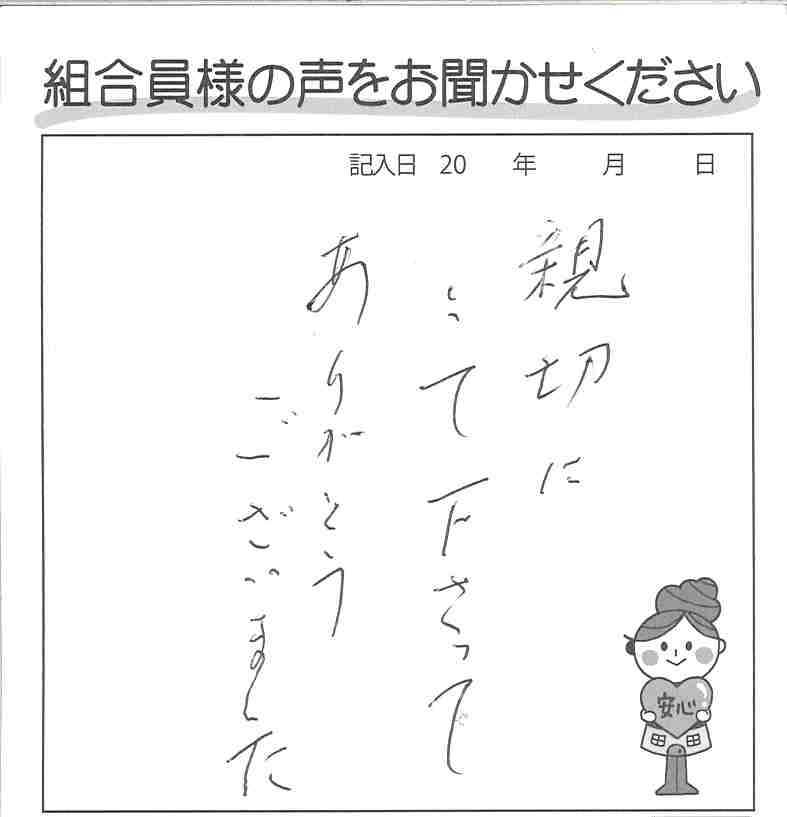 組合員様の声をお聞かせください
記入日 20 年 月 日
親切に
って下さって
ありがとう
ございました
安心